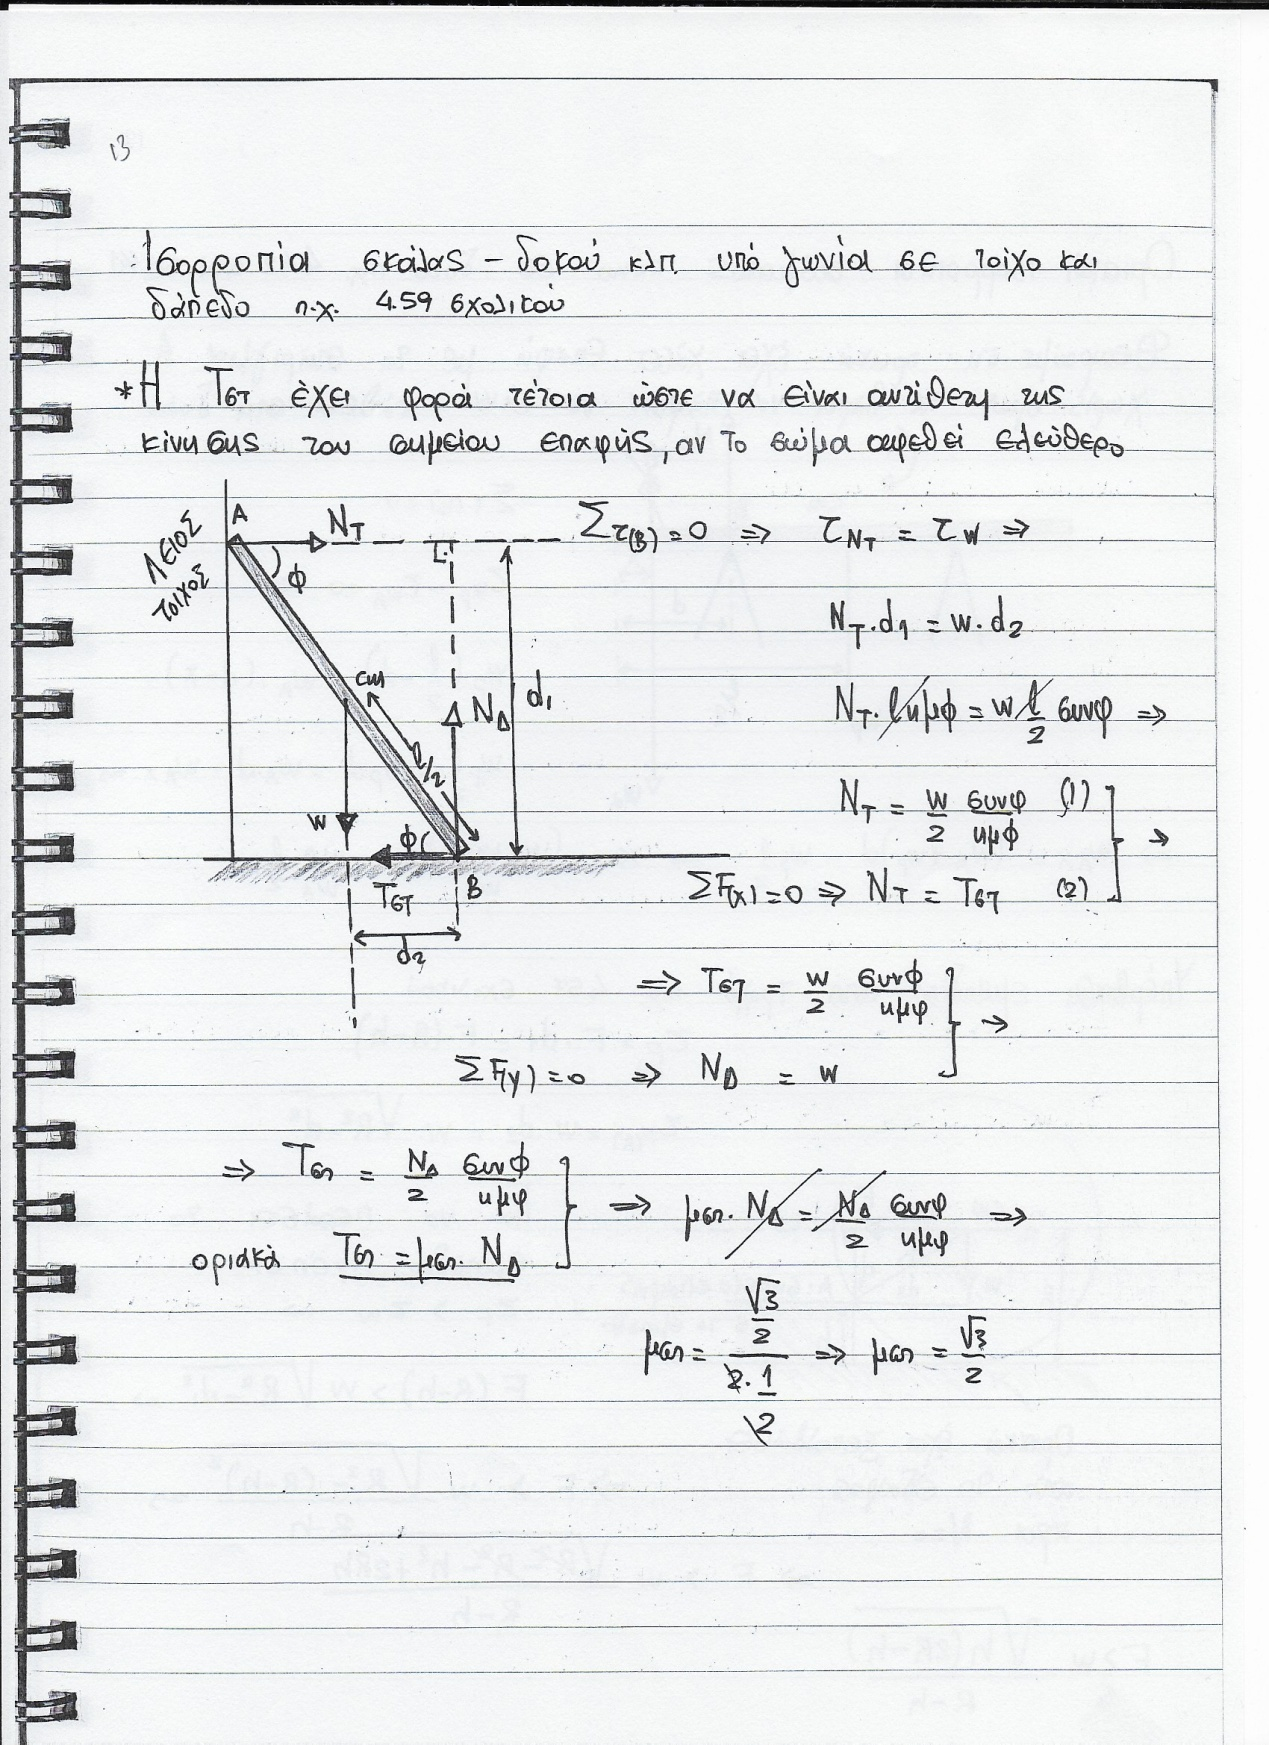 13
Ισορροπία σκάλας - δοκού κλπ. υπό γωνία σε τοίχο και
δάπεδο π.χ. 4.59 σχολικού
*Η Τστ έχει φορά τέτοια ώστε να είναι αντίθετη της
κίνησης του σημείου επαφής, αν το σώμα αφεθεί ελεύθερο
ΛΕΙΟΣ
ΤΟΙΧΟΣ
A
N_T
φ
Στ(B) = 0 ⇒ τ_{N_T} = τ_W ⇒
N_T · d_1 = w · d_2
cm
d_1
N_Δ
l/2
N_T · l ημφ = w l/2 συνφ ⇒
w
φ
N_T = w/2 συνφ/ημφ (1)
Tστ
B
ΣF(x) = 0 ⇒ N_T = Tστ (2) } →
d_2
⇒ Tστ = w/2 συνφ/ημφ
ΣF(y) = 0 ⇒ N_Δ = w } ⇒
⇒ Tστ = N_Δ/2 συνφ/ημφ
οριακά Tστ = μστ. N_Δ } ⇒ μστ. N_Δ = N_Δ/2 συνφ/ημφ ⇒
μστ = (√3/2)/(2·1/2) ⇒ μστ = √3/2